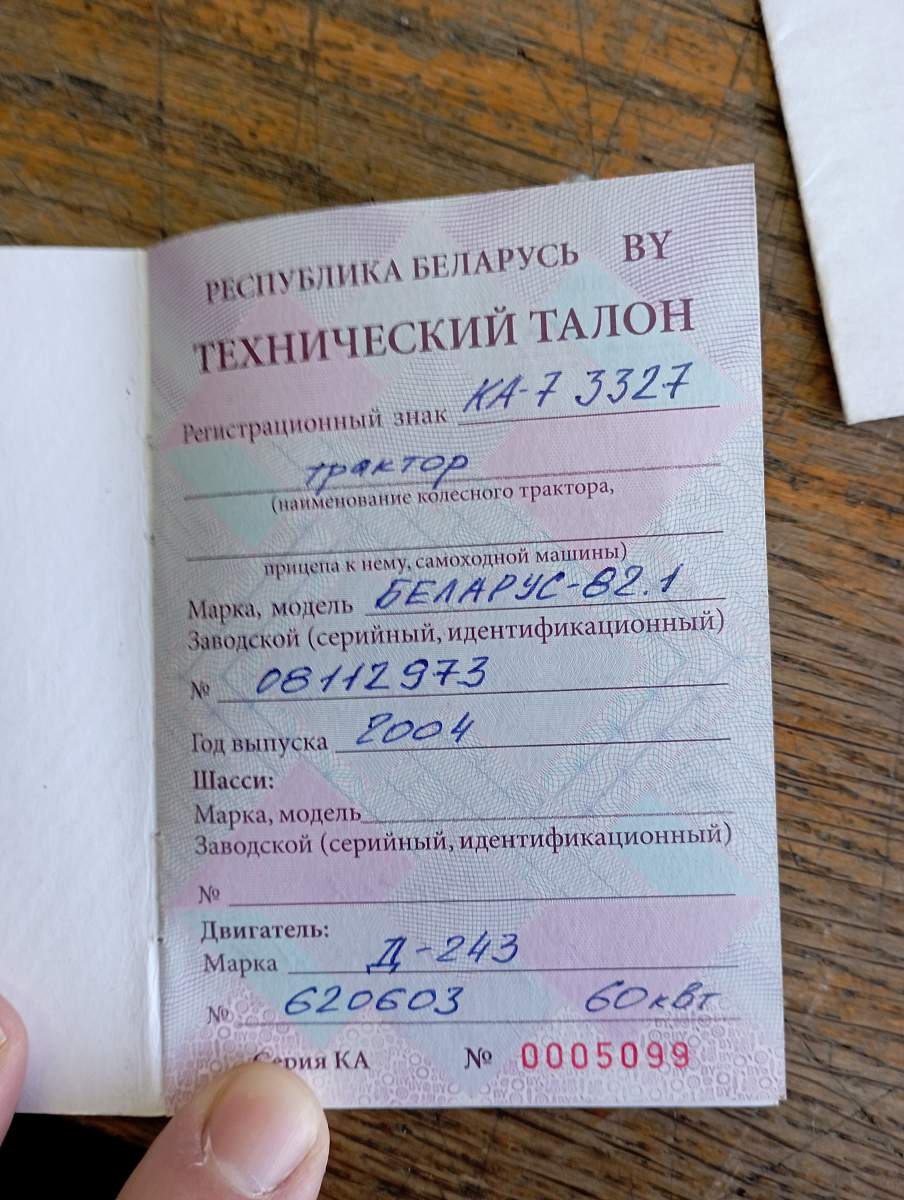 РЕСПУБЛИКА БЕЛАРУСЬ BY
ТЕХНИЧЕСКИЙ ТАЛОН
Регистрационный знак КА-7 3327
трактор
(наименование колесного трактора,
прицепа к нему, самоходной машины)
Марка, модель БЕЛАРУС-82.1
Заводской (серийный, идентификационный)
№ 08112973
Год выпуска 2004
Шасси:
Марка, модель
Заводской (серийный, идентификационный)
№
Двигатель:
Марка Д-243
№ 620603 60квт
Серия КА № 0005099